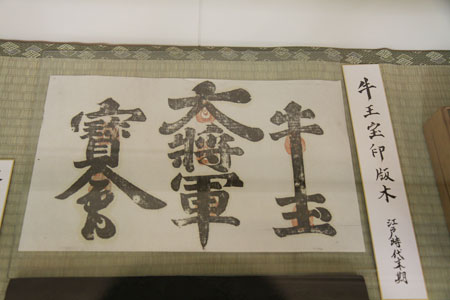 牛王宝印版木
江戸時代末期
牛玉
大将軍
寳命